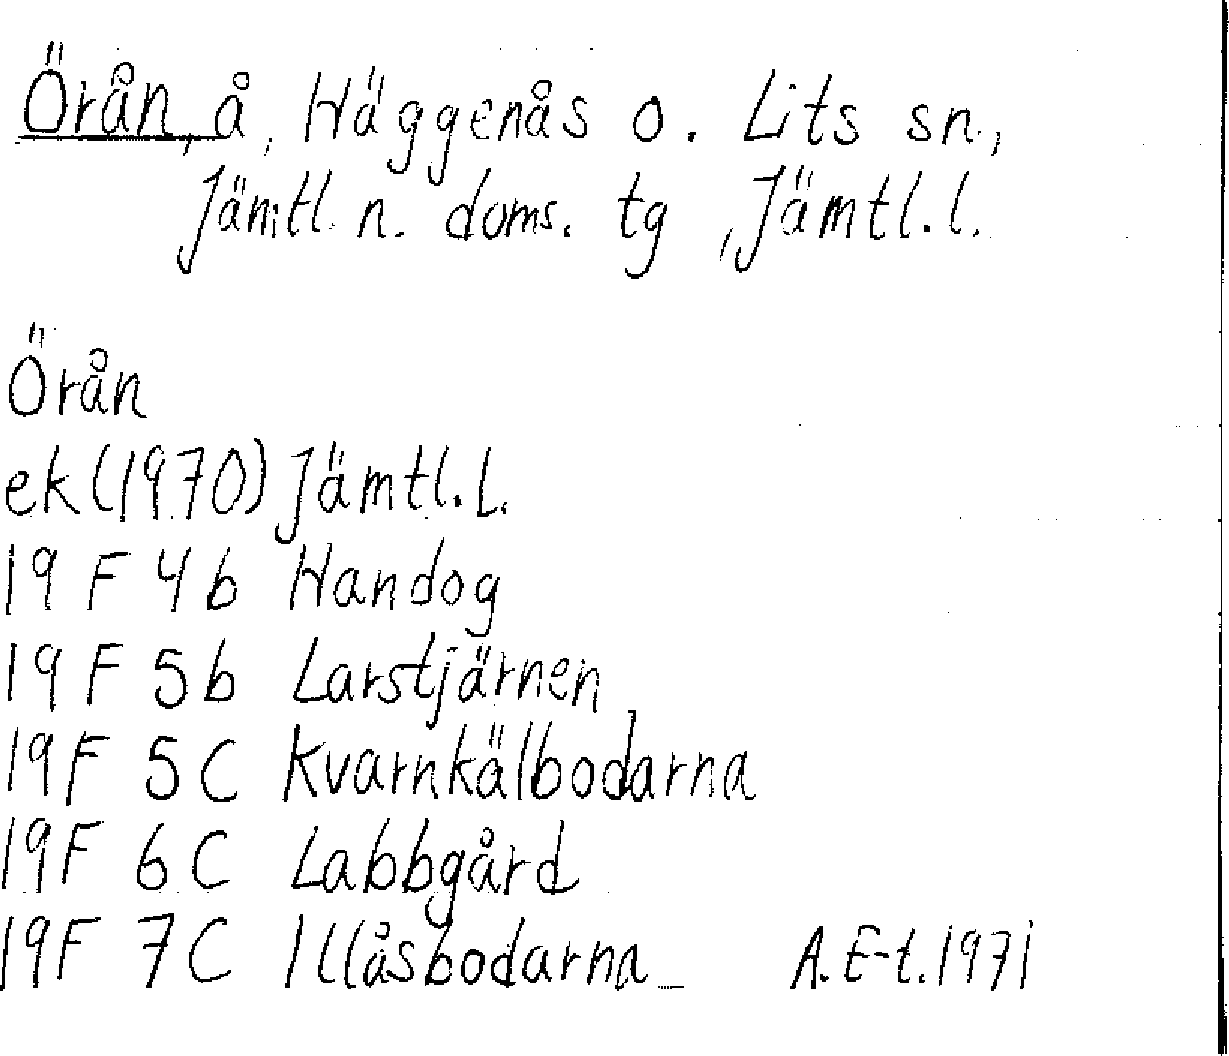 Örån, å, Häggenås o. Lits sn,
Jämtl. n. doms. tg, Jämtl. l.
Örån
ek (1970) Jämtl. l.
19 F 4b Handog
19 F 5b Larstjärnen
19F 5C Kvarnkälbodarna
19F 6C Labbgård
19F 7C Illåsbodarna A. E-t. 1971